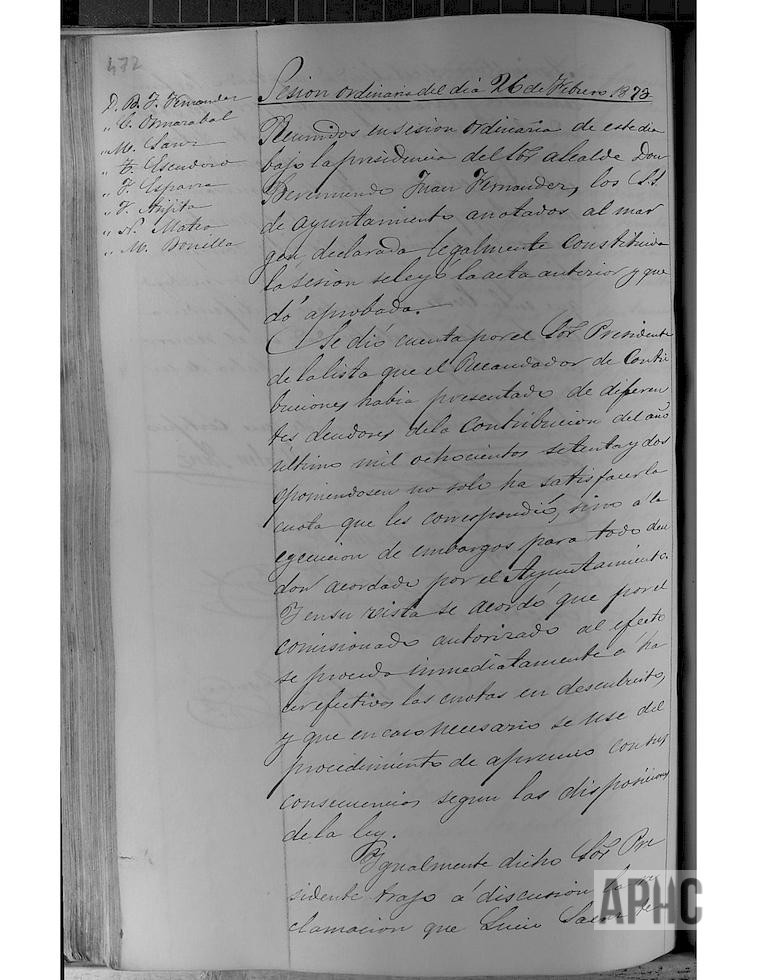 472
D. B. J. Fernandez
" C. Ormazabal
" M. Sanz
" E. Escudero
" F. Esparza
" F. Azpta
" N. Mateo
" M. Bonilla
Sesion ordinaria del dia 26 de Febrero 1873
Reunidos en sesion ordinaria de este dia
bajo la presidencia del Sor alcalde Don
Beremundo Juan Fernandez, los S.S.
de ayuntamiento anotados al mar
gen, declarada legalmente constituida
la sesion se leyó la acta anterior y que
dó aprobada.
Se dió cuenta por el Sor Presidente
de la lista que el Recaudador de Contri
buciones habia presentado de diferen
tes deudores de la Contribucion del año
último mil ochocientos setenta y dos
oponiendosen no solo ha satisfacer la
cuota que les correspondió, sino a la
egecucion de embargos para todo deu
dor acordado por el Ayuntamiento.
Y en su vista se acordó que por el
comisionado autorizado al efecto
se proceda inmediatamente a ha
cer efectivas las cuotas en descubierto,
y que en caso necesario se use del
procedimiento de apremio con sus
consecuencias segun las disposiciones
de la ley.
Ygualmente dicho Sor Pre
sidente trajo á discusion la re
clamacion que Lucio de
APHC